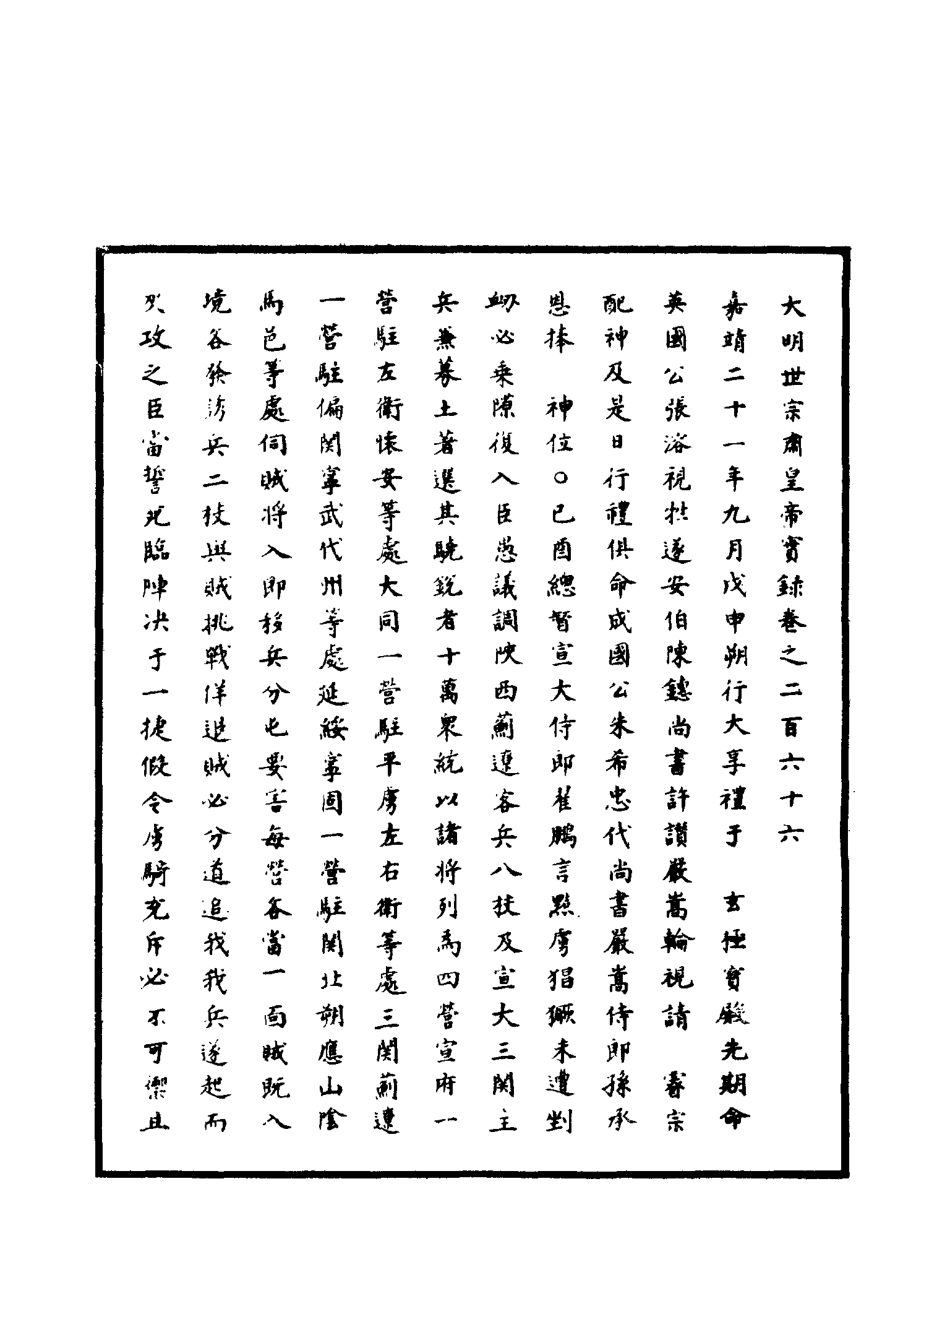 大明世宗肅皇帝實錄卷之二百六十六
嘉靖二十一年九月戊申朔行大享禮于　玄極寶殿先期命
英國公張溶視牲遂安伯陳鏸尚書許讚嚴嵩輪視請　睿宗
配神及是日行禮俱命成國公朱希忠代尚書嚴嵩侍郎孫承
恩捧　神位○己酉總督宣大侍郎翟鵬言黠虜猖獗未遭剉
衂必乘隙復入臣愚議調陝西薊遼客兵八枝及宣大三関主
兵兼募土著選其驍銳者十萬衆統以諸将列為四營宣府一
營駐左衛懷安等處大同一營駐平虜左右衛等處三関薊遼
一營駐偏関寧武代州等處延綏寧固一營駐関北朔應山陰
馬邑等處伺賊将入即移兵分屯要害每營各當一面賊既入
境各發誘兵二枝與賊挑戰佯退賊必分道追我我兵遂起而
夾攻之臣當誓死臨陣决于一捷假令虜騎充斥必不可禦且